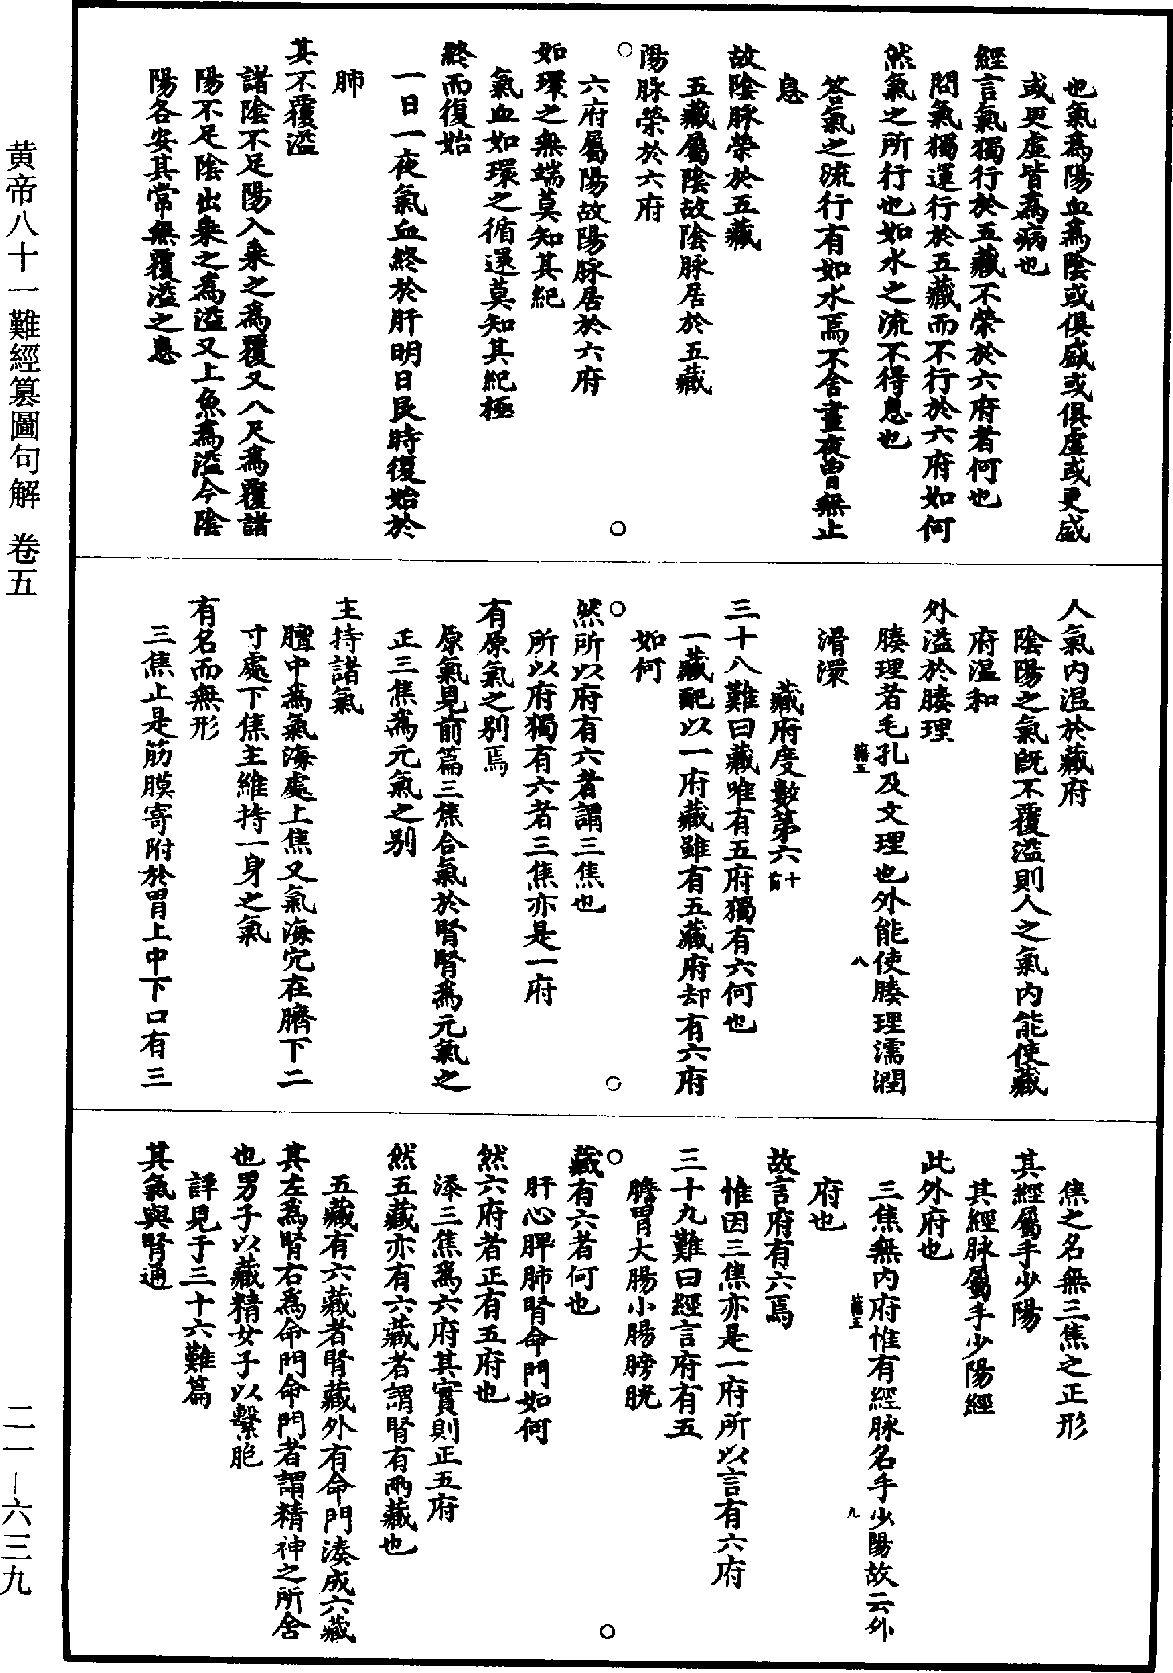 也氣爲陽血爲陰或俱盛或俱虛或更盛
或更虛皆爲病也
經言氣獨行於五藏不榮於六府者何也
問氣獨運行於五藏而不行於六府如何
然氣之所行也如水之流不得息也
答氣之流行有如水焉不舍晝夜曾無止
息
故陰脉榮於五藏
五藏屬陰故陰脉居於五藏
陽脉榮於六府
六府屬陽故陽脉居於六府
如環之無端莫知其紀
氣血如環之循還莫知其紀極
終而復始
一日一夜氣血終於肝明日艮時復始於
肺
其不覆溢
諸陰不足陽入乘之爲覆又八尺爲覆諸
陽不足陰出乘之爲溢又上魚爲溢今陰
陽各安其常無覆溢之患
人氣内溫於藏府
陰陽之氣旣不覆溢則人之氣内能使藏
府溫和
外溢於腠理
腠理者毛孔及文理也外能使腠理濡潤
滑澤
藏府度數第六十首
三十八難曰藏唯有五府獨有六何也
一藏配以一府藏雖有五藏府却有六府
如何
然所以府有六者謂三焦也
所以府獨有六者三焦亦是一府
有原氣之别焉
原氣見前篇三焦合氣於腎腎爲元氣之
正三焦爲元氣之别
主持諸氣
膻中爲氣海處上焦又氣海穴在臍下二
寸處下焦主維持一身之氣
有名而無形
三焦止是筋膜寄附於胃上中下口有三
焦之名無三焦之正形
其經屬手少陽
其經脉屬手少陽經
此外府也
三焦無内府惟有經脉名手少陽故云外
府也
故言府有六焉
惟因三焦亦是一府所以言有六府
三十九難曰經言府有五
膽胃大腸小腸膀胱
藏有六者何也
肝心脾肺腎命門如何
然六府者正有五府也
添三焦爲六府其實則正五府
然五藏亦有六藏者謂腎有兩藏也
五藏有六藏者腎藏外有命門湊成六藏
其左爲腎右爲命門命門者謂精神之所舍
也男子以藏精女子以繫胞
詳見于三十六難篇
其氣與腎通
黄帝八十一難經纂圖句解 卷五
二一—六三九